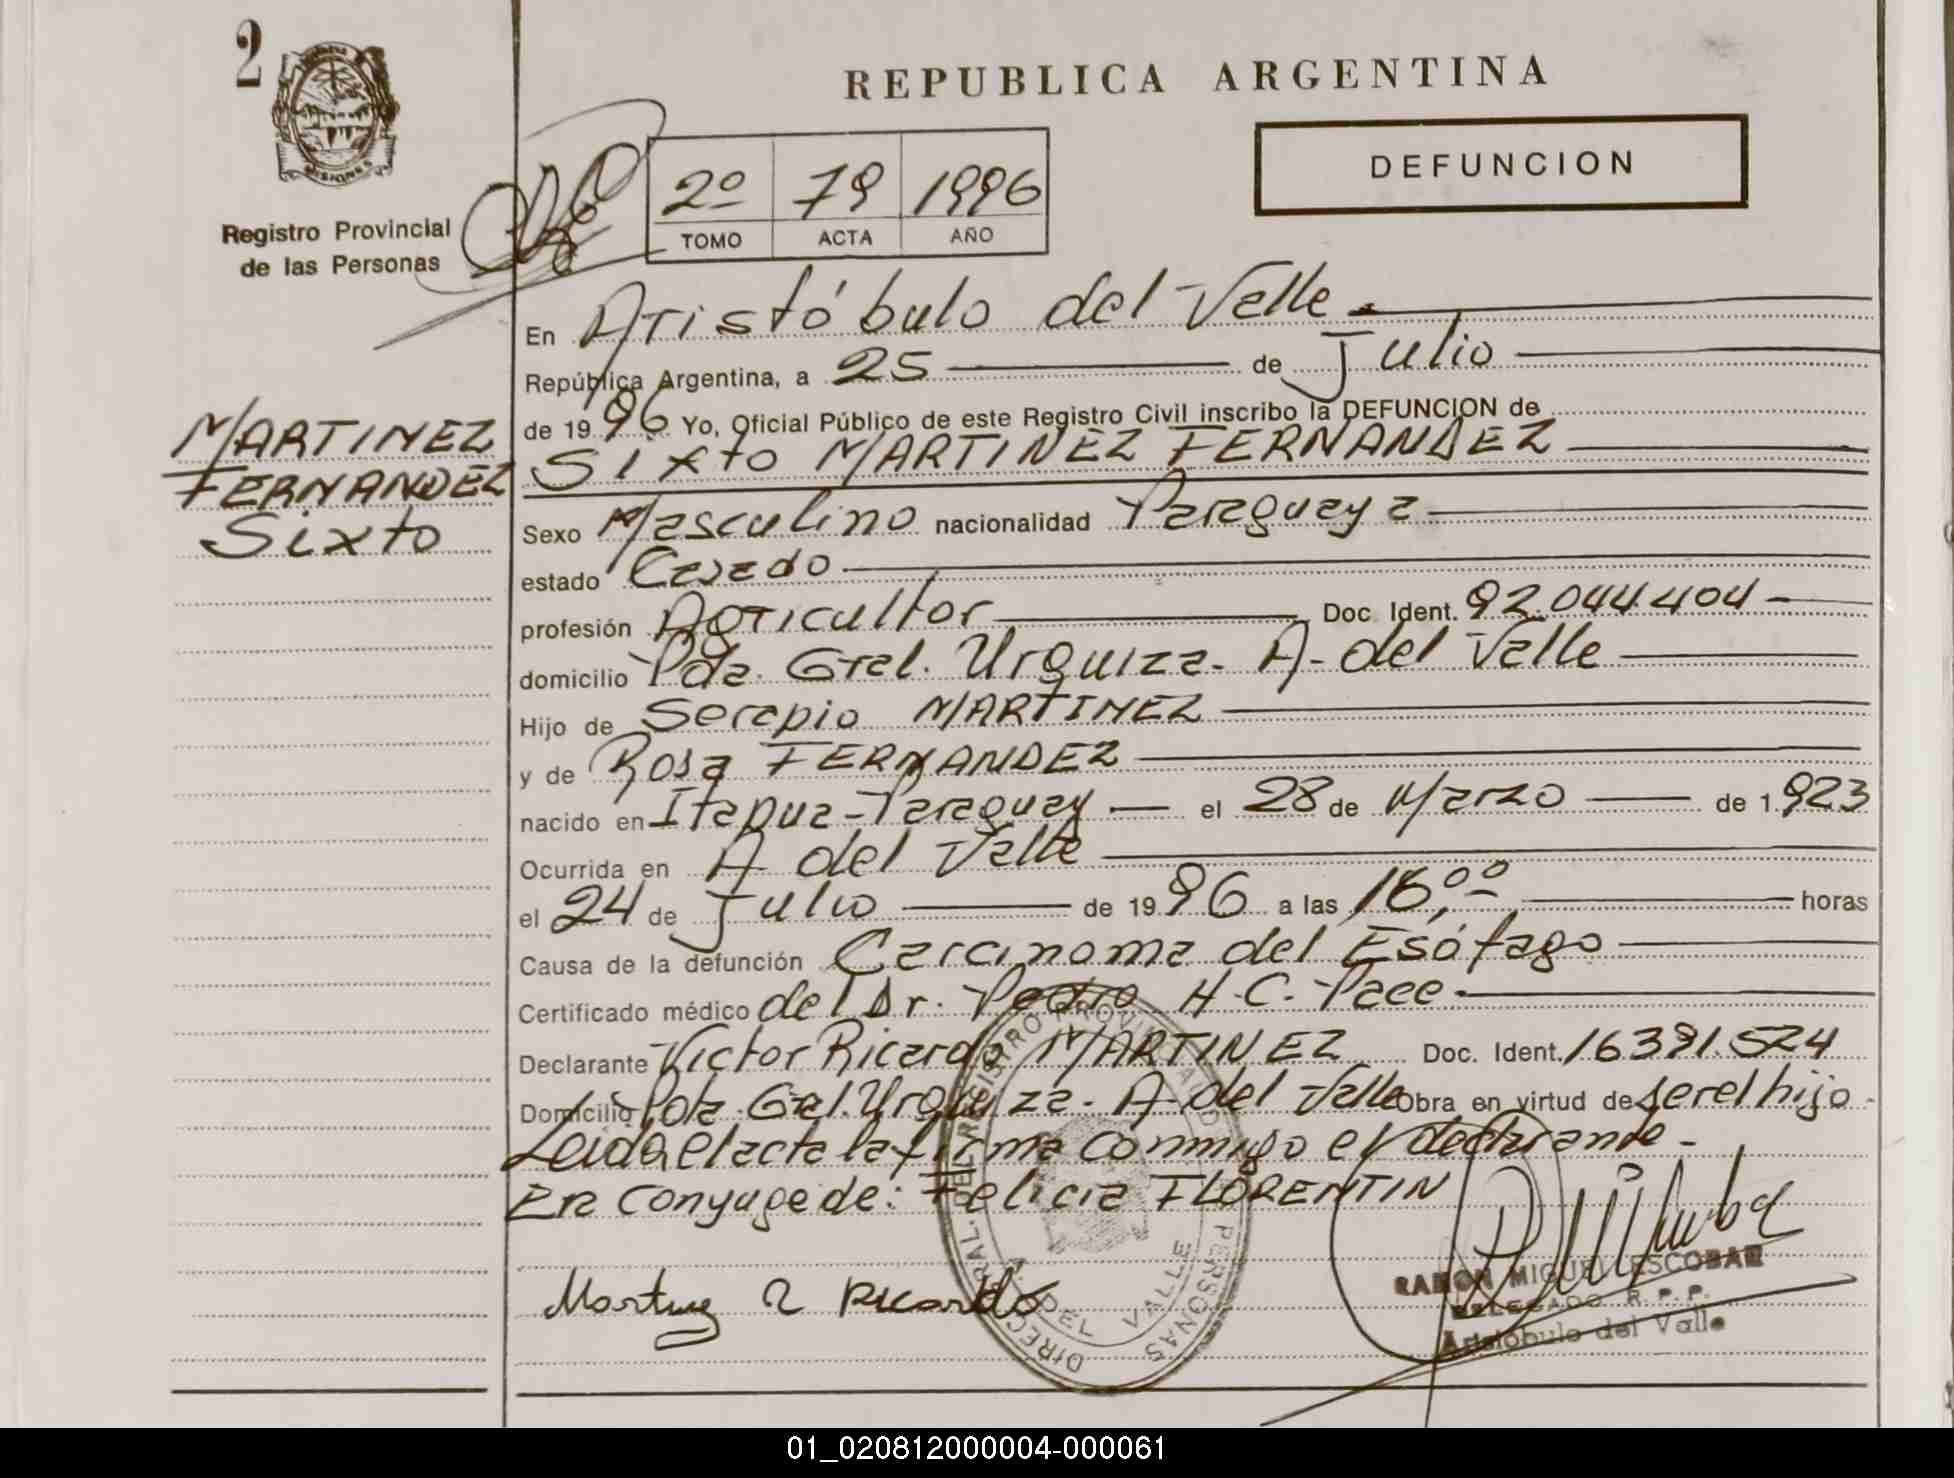 2
REPUBLICA ARGENTINA
DEFUNCION
MISIONES
Registro Provincial
de las Personas
2º 79 1996
TOMO ACTA AÑO
En Aristóbulo del Valle.
República Argentina, a 25 de Julio
de 1996 Yo, Oficial Público de este Registro Civil inscribo la DEFUNCION de
MARTINEZ
FERNANDEZ
Sixto
Sixto MARTINEZ FERNANDEZ
Sexo Masculino nacionalidad Paraguaya
estado Casado
profesión Agricultor Doc. Ident. 92.044.404
domicilio Pda. Gral. Urquiza. A. del Valle
Hijo de Serapio MARTINEZ
y de Rosa FERNANDEZ
nacido en Itapua-Paraguay el 28 de Marzo de 1.923
Ocurrida en A del Valle
el 24 de Julio de 1996 a las 16,00 horas
Causa de la defunción Carcinoma del Esófago
Certificado médico del Dr. Pedro H.C. Pace
Declarante Victor Ricardo MARTINEZ Doc. Ident. 16391.524
Domicilio Pda. Gral. Urquiza. A. del Valle Obra en virtud de ser el hijo.
Leida el acta la firma conmigo el declarante.
Era conyuge de: Felicia FLORENTIN
Martinez R Ricardo
DIREC. GRAL. DEL REGISTRO PROVINCIAL DE PERSONAS
A. DEL VALLE
RAMON MIGUEL ESCOBAR
DELEGADO R. P. P.
Aristóbulo del Valle
01_020812000004-000061